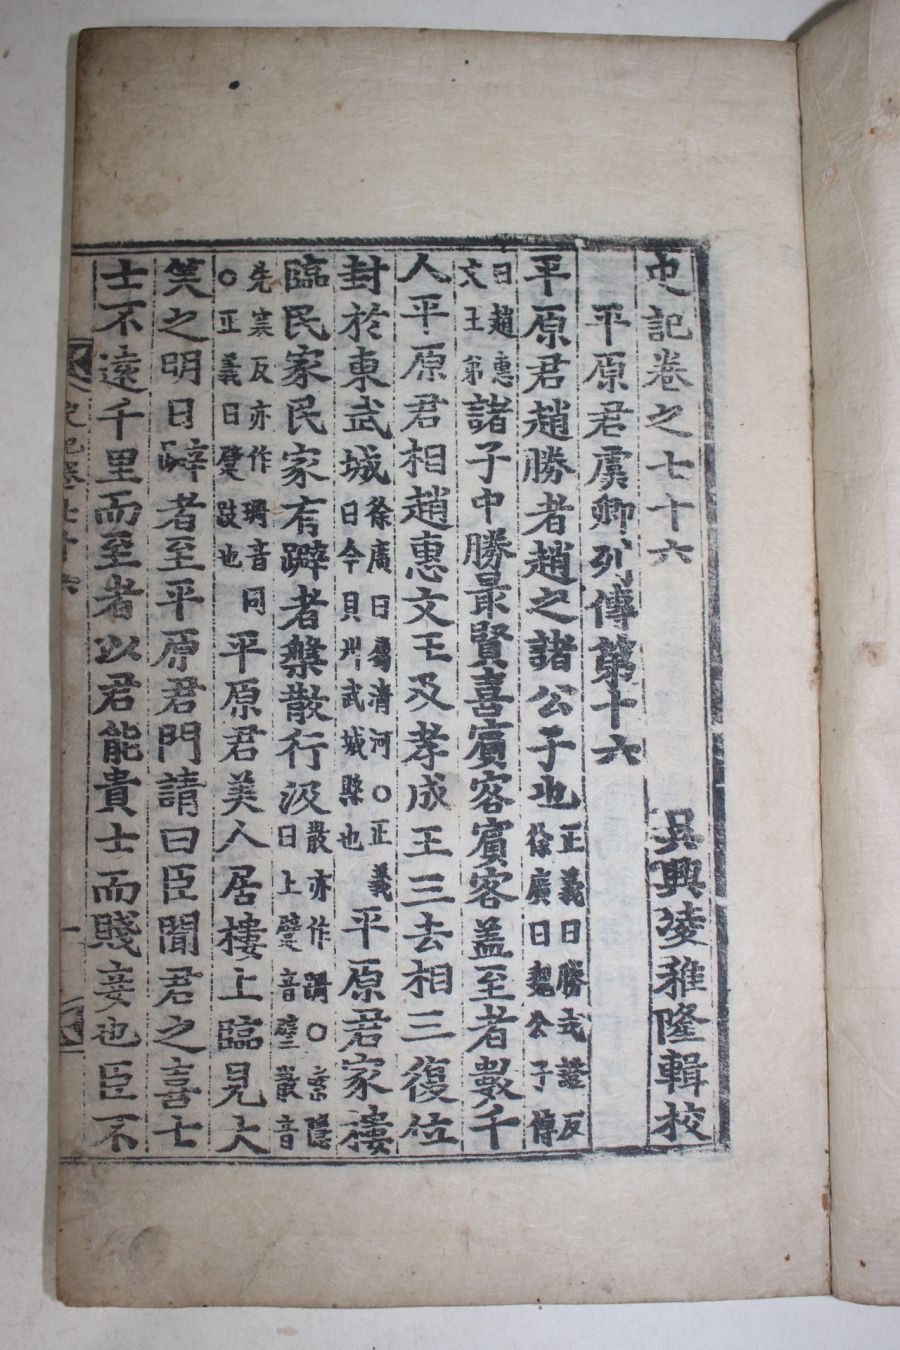 史記卷之七十六 吳興凌稚隆輯校
平原君虞卿列傳第十六
平原君趙勝者趙之諸公子也正義曰勝式證反徐廣曰魏公子傳
曰趙惠文王弟諸子中勝最賢喜賓客賓客蓋至者數千
人平原君相趙惠文王及孝成王三去相三復位
封於東武城徐廣曰屬清河○正義曰今貝州武城縣也平原君家樓
臨民家民家有躄者槃散行汲散亦作跚○索隱曰上躄音壁散音
先寒反亦作珊音同○正義曰躄跛也平原君美人居樓上臨見大
笑之明日躄者至平原君門請曰臣聞君之喜士
士不遠千里而至者以君能貴士而賤妾也臣不